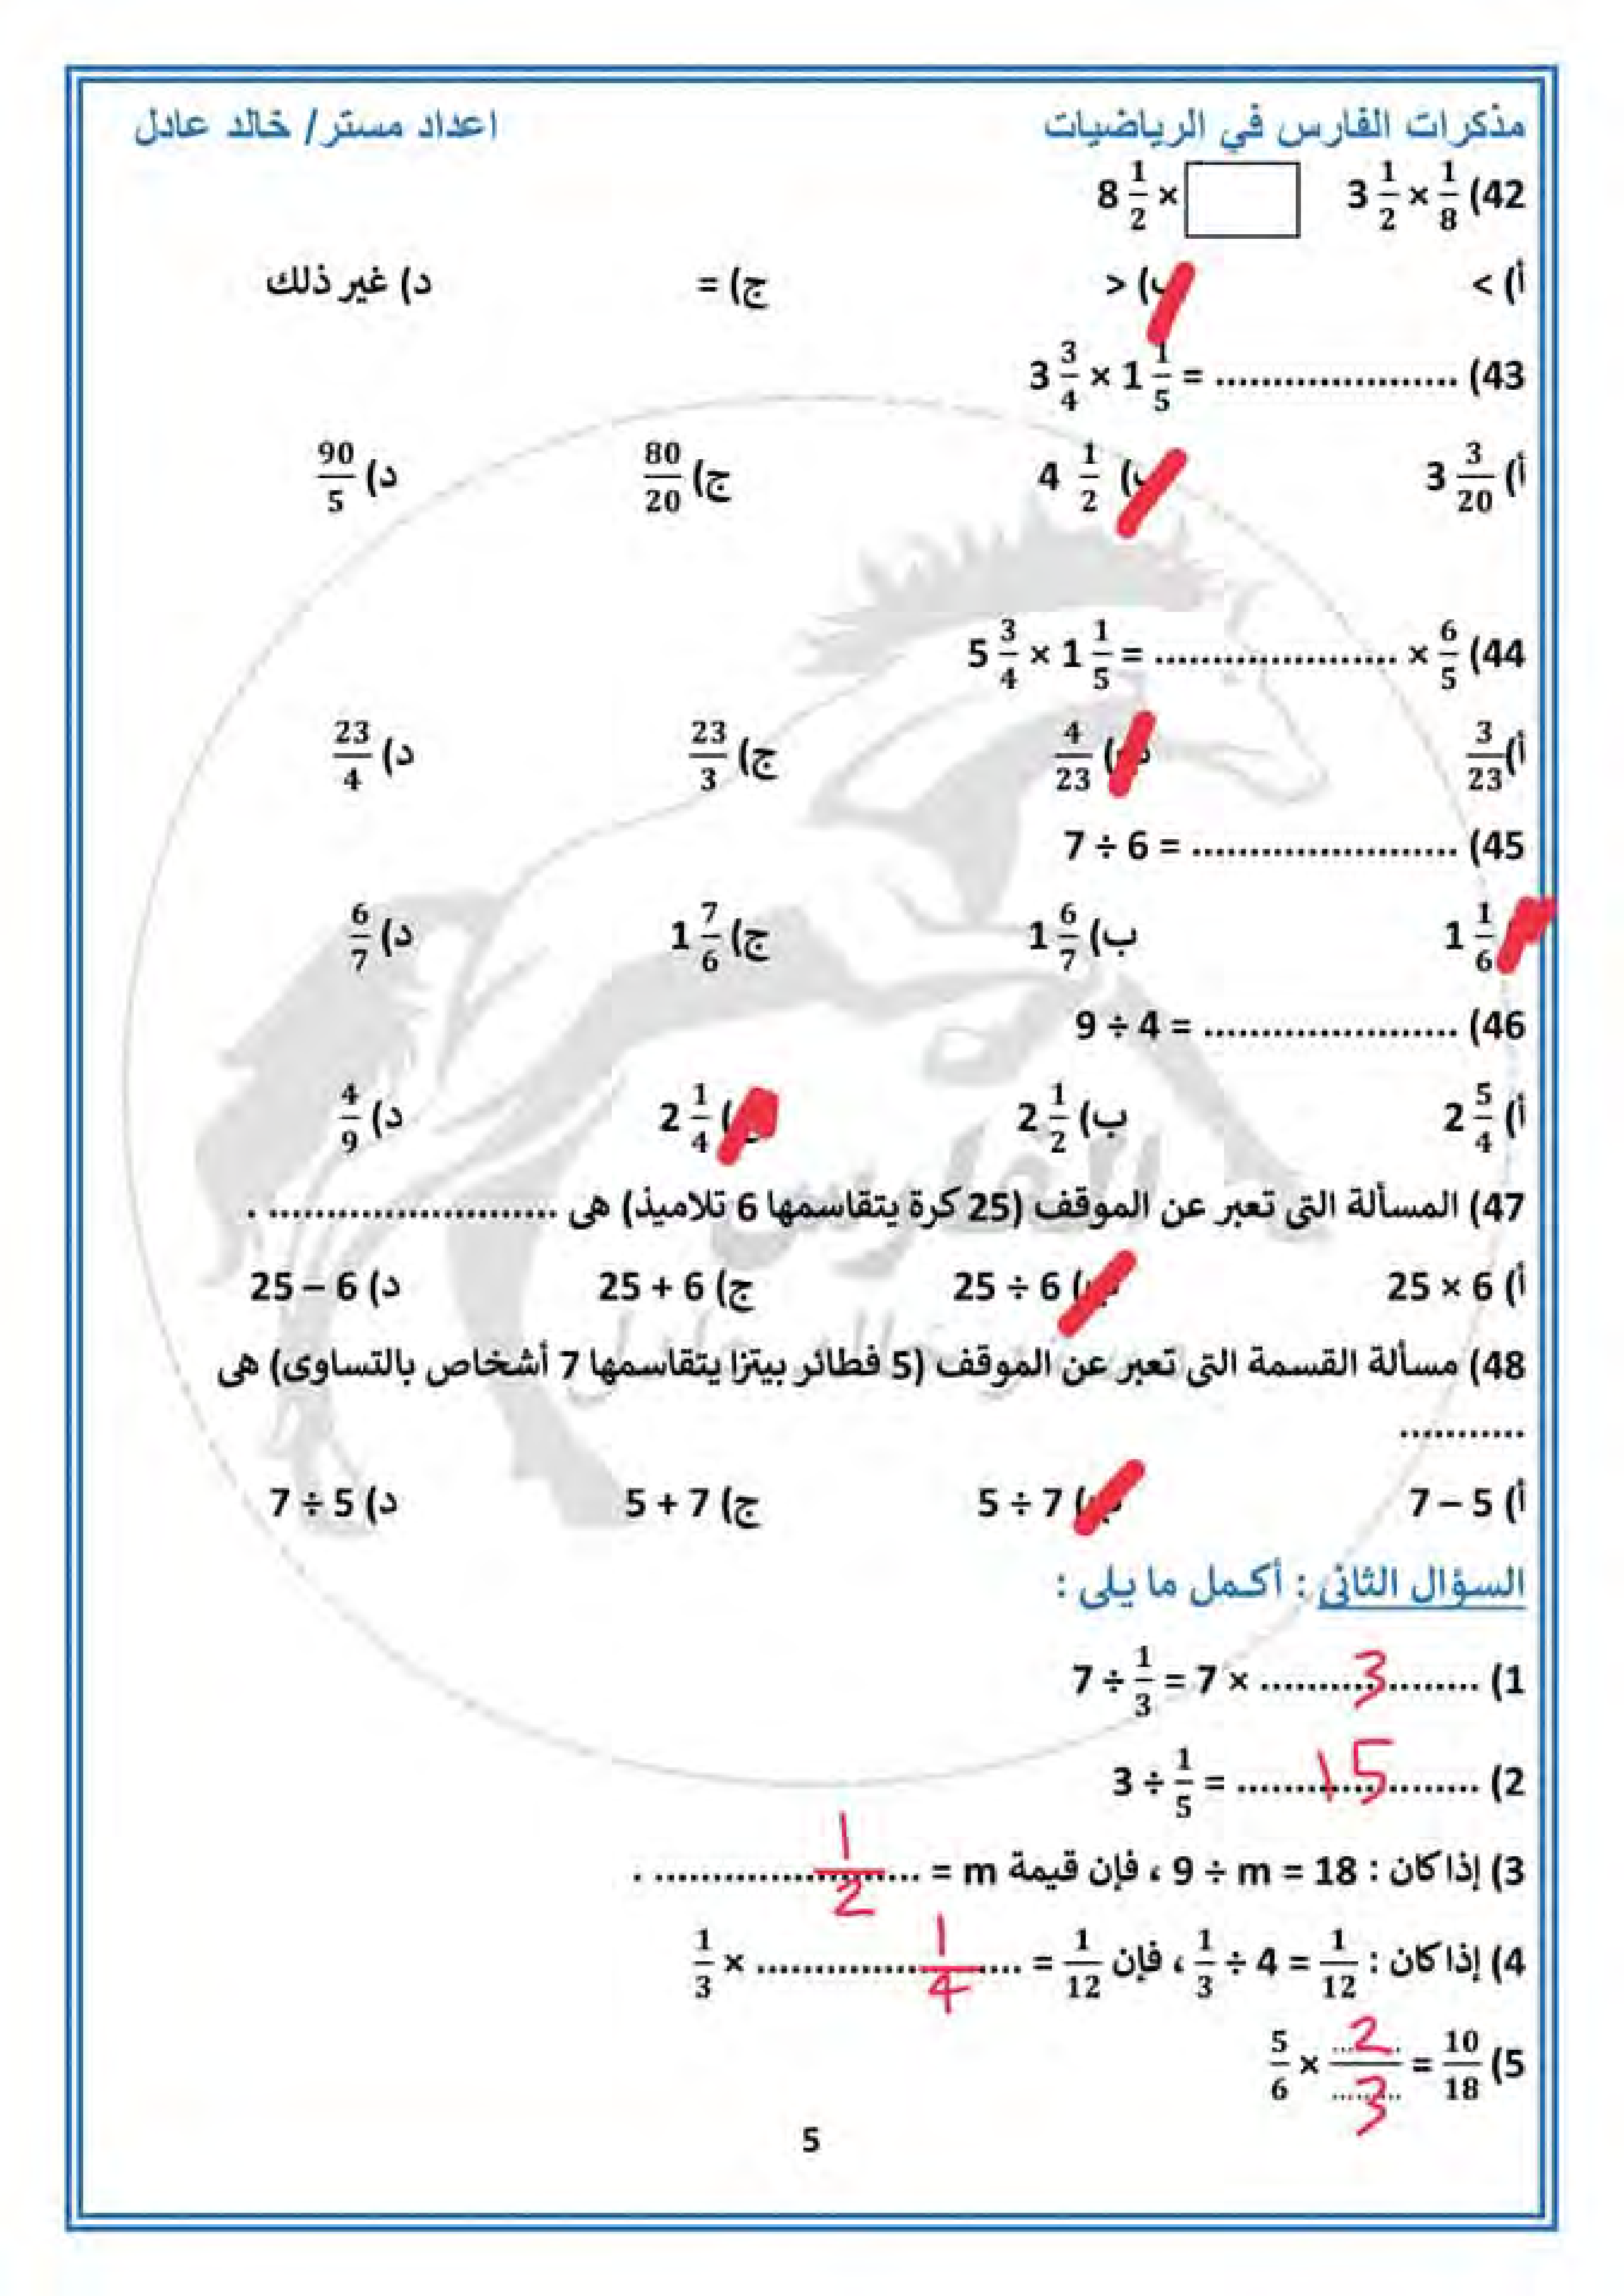 مذكرات الفارس في الرياضيات اعداد مستر/ خالد عادل
42) 3 1/2 × 1/8 8 1/2 ×
أ) > ب) < ج) = د) غير ذلك
43) 3 3/4 × 1 1/5 = .....................
أ) 3 3/20 ب) 4 1/2 ج) 80/20 د) 90/5
44) 5 3/4 × 1 1/5 = ..................... × 6/5
أ) 3/23 ب) 4/23 ج) 23/3 د) 23/4
45) 7 ÷ 6 = .......................
1 1/6 ب) 1 6/7 ج) 1 7/6 د) 6/7
46) 9 ÷ 4 = ......................
أ) 2 5/4 ب) 2 1/2 2 1/4 د) 4/9
47) المسألة التى تعبر عن الموقف (25 كرة يتقاسمها 6 تلاميذ) هى ......................... .
أ) 25 × 6 ب) 25 ÷ 6 ج) 25 + 6 د) 25 – 6
48) مسألة القسمة التى تعبر عن الموقف (5 فطائر بيتزا يتقاسمها 7 أشخاص بالتساوى) هى
...........
أ) 7 – 5 ب) 5 ÷ 7 ج) 5 + 7 د) 7 ÷ 5
السؤال الثانى : أكمل ما يلى :
1) 7 ÷ 1/3 = 7 × .........3.........
2) 3 ÷ 1/5 = .........15.........
3) إذا كان : 9 ÷ m = 18 ، فإن قيمة m = ...... 1/2 ............... .
4) إذا كان : 1/3 ÷ 4 = 1/12 ، فإن 1/12 = ..... 1/4 .............. × 1/3
5) 5/6 × 2/3 = 10/18
5